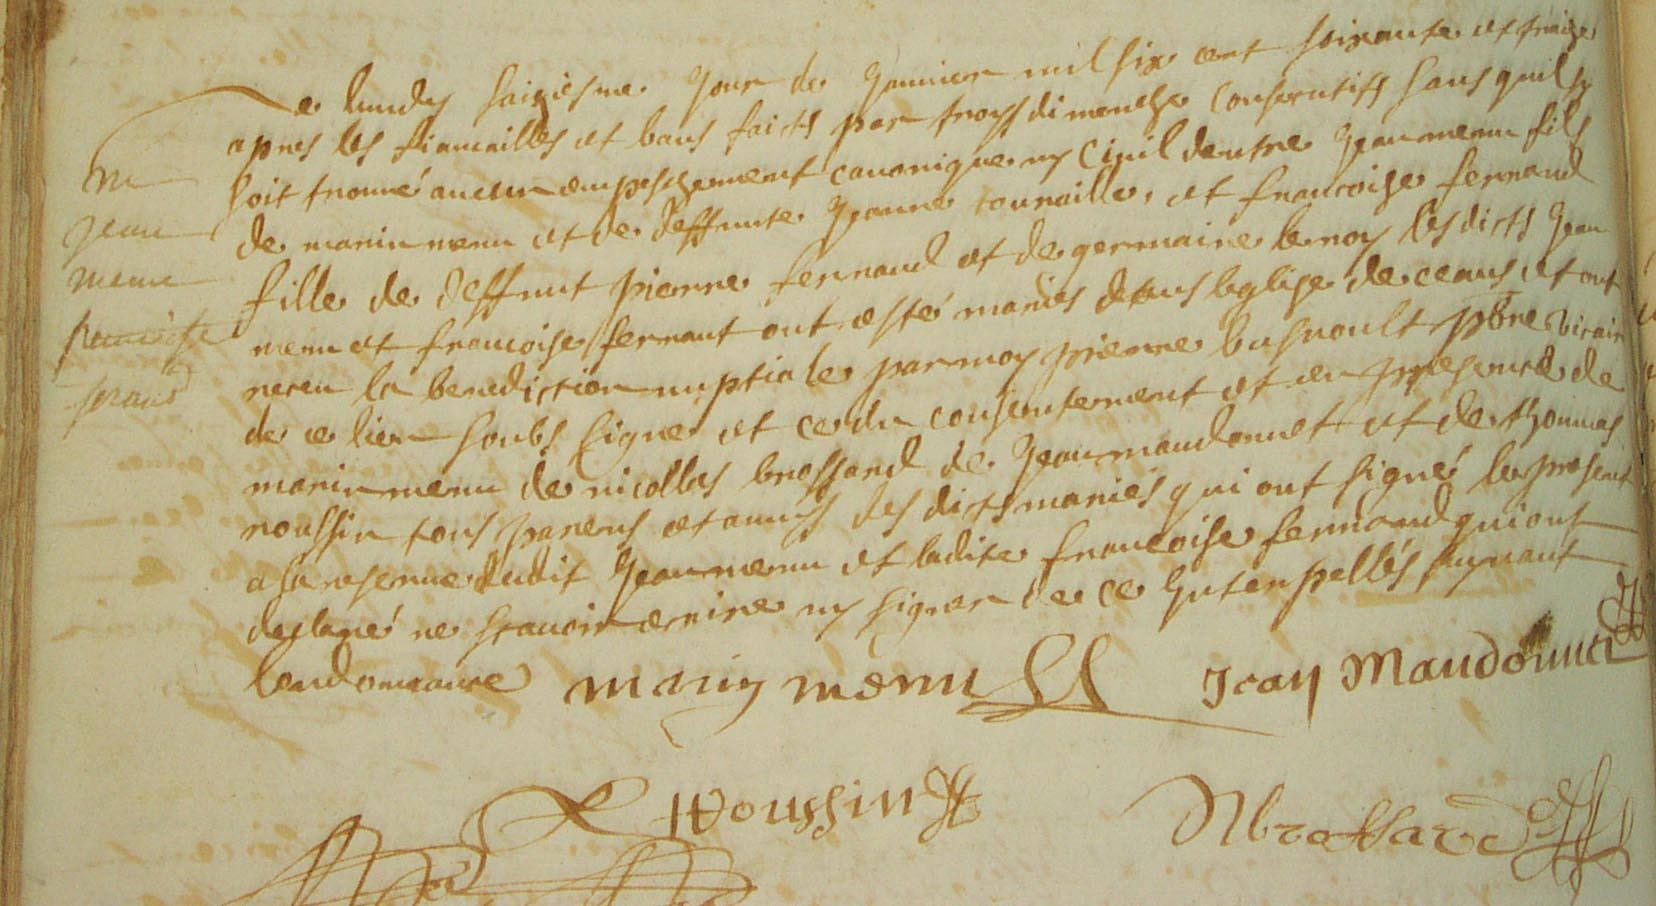 Le lundy saiziesme Jour de Janvier mil six cent soixante et traize
apres les fiancailles et bans faicts par troys dimenche consecutifs sans quil sy
soit trouvé aucun empeschement canonique ny Civil dentre Jean menu fils
de marin menu et de deffunte Jeanne touraille, et francoise fernand
fille de deffunt pierre fernand et de germaine leroy lesdicts Jean
menu et francoise fernant ont esté mariés dans leglise de ceans et ont
receu la benediction nuptiale par moy pierre bufnoult pbre vicaire
de ce lieu soubs signé et ce du consentement et en presence de
marin menu de nicollas brossard de Jean maudonnet et de thommas
roussin tous parens et amis des dicts mariés qui ont signé le present
a la reserve dudit Jean menu et ladite francoise fernand qui ont
declaré ne scavoir escrire ny signer de ce Interpellés suyvant
lordonnance
m
Jean
menu
francoise
fernand
marin menu
Jean Maudonnet
T Roussin
N brossard